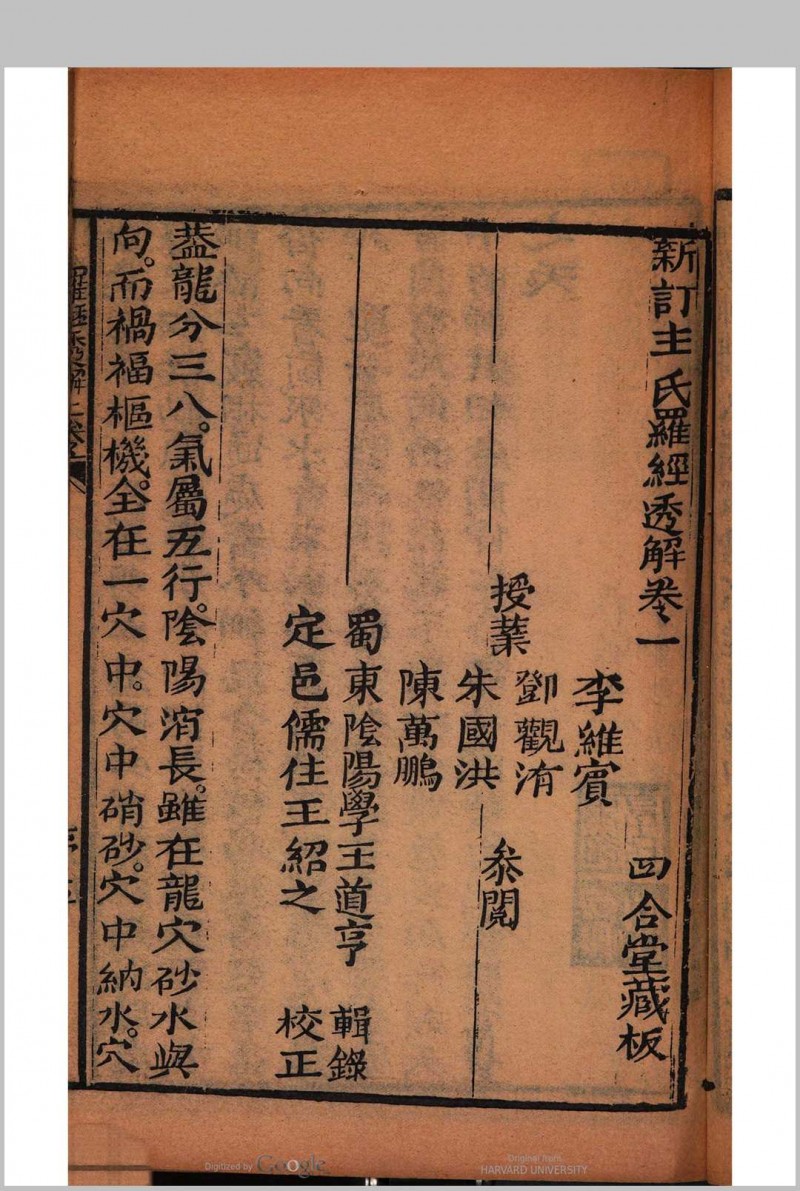 新訂王氏羅經透解卷一
四合堂藏板
李維賓
授業 鄧觀洧
朱國洪 叅閱
陳萬鵬
蜀東陰陽學王道亨 輯錄
定邑儒住王紹之 校正
葢龍分三八。氣屬五行。陰陽消長。雖在龍穴砂水與
向。而禍福樞機。全在一穴中。穴中硝砂。穴中納水。穴
羅經透解
Digitized by Google
Original from
HARVARD UNIVERSITY